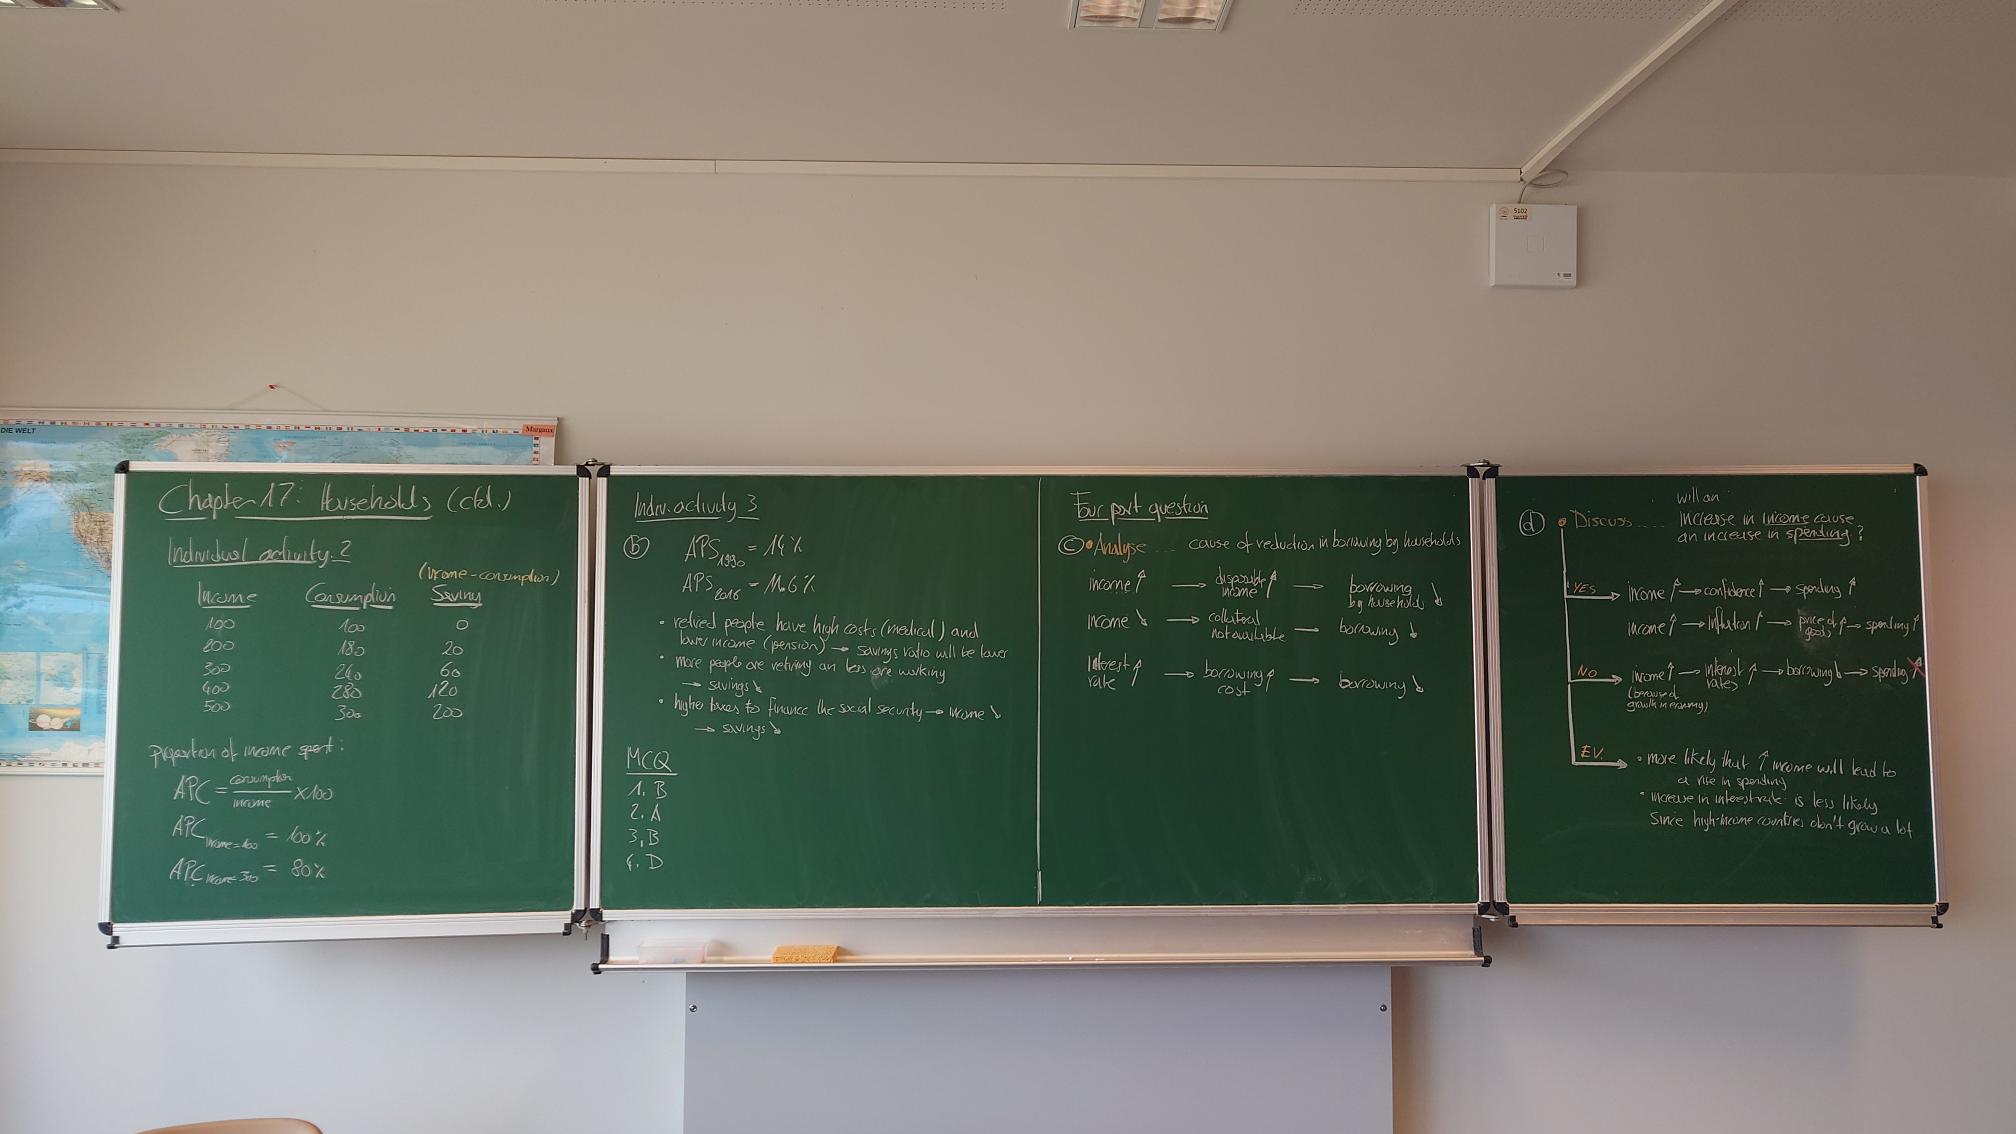 DIE WELT
Margaux
Chapter 17: Households (ctd.)
Individual activity 2
(income-consumption)
Income Consumption Saving
100 100 0
200 180 20
300 240 60
400 280 120
500 300 200
proportion of income spent:
APC = consumption / income x100
APC income=100 = 100%
APC income=300 = 80%
Indiv. activity 3
b) APS 1990 = 14%
APS 2016 = 11.6%
• retired people have high costs (medical) and
lower income (pension) → savings ratio will be lower
• more people are retiring an less are working
→ savings ↘
• higher taxes to finance the social security → income ↘
→ savings ↘
MCQ
1. B
2. A
3. B
4. D
Four part question
c) • Analyse ... cause of reduction in borrowing by households
income ↑ → disposable income ↑ → borrowing by households ↘
income ↘ → collateral not available — borrowing ↘
Interest rate ↑ → borrowing cost ↑ → borrowing ↘
will an
d) • Discuss ..... increase in income cause
an increase in spending?
YES → income ↑ → confidence ↑ → spending ↑
income ↑ → inflation ↑ → price of goods ↑ → spending ↑
NO → income ↑ → interest rates ↑ → borrowing ↓ → spending ↑
(because of
growth in economy)
EV. → • more likely that ↑ income will lead to
a rise in spending
• increase in interest rate is less likely
since high-income countries don't grow a lot
5102